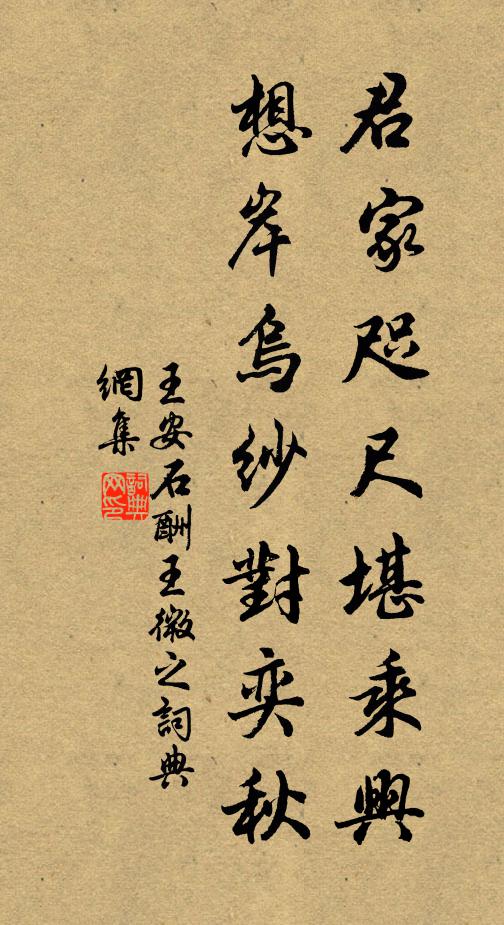 君家咫尺堪乘興
想岸烏紗對奕秋
王安石酬王微之詞典
網集
詞典
网